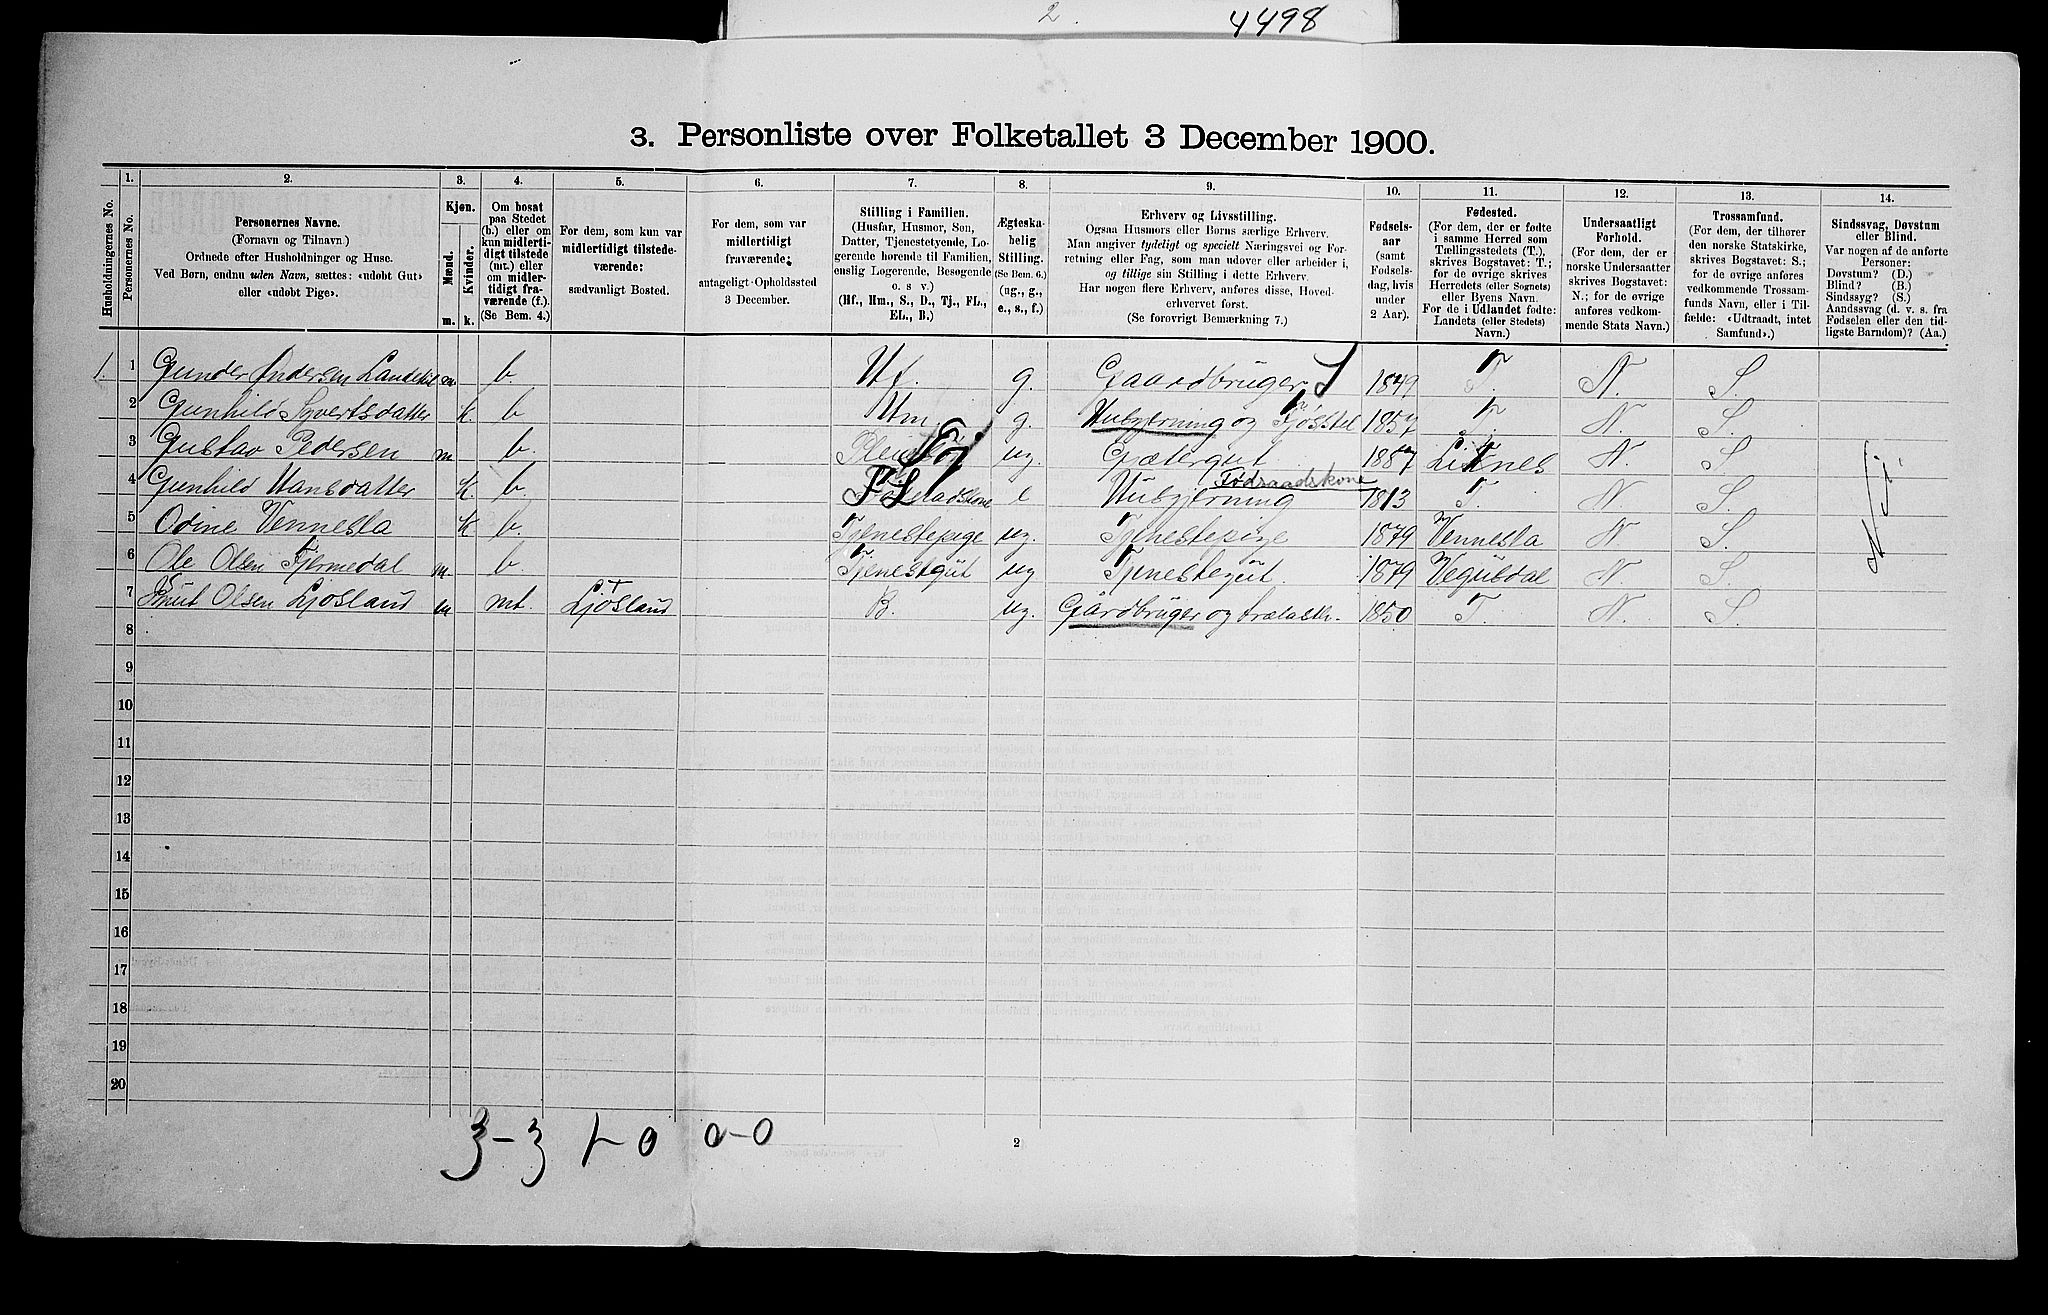 2. 4498
3. Personliste over Folketallet 3 December 1900.
1. 2. 3. 4. 5. 6. 7. 8. 9. 10. 11. 12. 13. 14.
Husholdningernes No.
Personernes No.
Personernes Navne.
(Fornavn og Tilnavn.)
Ordnede efter Husholdninger og Huse.
Ved Børn, endnu uden Navn, sættes: «udøbt Gut»
eller «udøbt Pige».
Kjøn.
Mænd.
Kvinder.
m. k.
Om bosat
paa Stedet
(b.) eller om
kun midlerti-
digt tilstede
(mt.) eller
om midler-
tidigt fra-
værende (f.).
(Se Bem. 4.)
For dem, som kun var
midlertidigt tilstede-
værende:
sædvanligt Bosted.
For dem, som var
midlertidigt
fraværende:
antageligt Opholdssted
3 December.
Stilling i Familien.
(Husfar, Husmor, Søn,
Datter, Tjenestetyende, Lo-
gerende hørende til Familien,
enslig Logerende, Besøgende
o. s. v.)
(Hf., Hm., S., D., Tj., FL.,
EL., B.)
Ægteska-
belig
Stilling.
(Se Bem. 6.)
(ug., g.,
e., s., f.)
Erhverv og Livsstilling.
Ogsaa Husmors eller Børns særlige Erhverv.
Man angiver tydeligt og specielt Næringsvei og For-
retning eller Fag, som man udøver eller arbeider i,
og tillige sin Stilling i dette Erhverv.
Har nogen flere Erhverv, anføres disse, Hoved-
erhvervet først.
(Se forøvrigt Bemærkning 7.)
Fødsels-
aar
(samt
Fødsels-
dag, hvis
under
2 Aar).
Fødested.
(For dem, der er fødte
i samme Herred som
Tællingsstedets (T.),
skrives Bogstavet: T.;
for de øvrige skrives
Herredets (eller Sognets)
eller Byens Navn.
For de i Udlandet fødte:
Landets (eller Stedets)
Navn.)
Undersaatligt
Forhold.
(For dem, der er
norske Undersaatter
skrives Bogstavet:
N.; for de øvrige
anføres vedkom-
mende Stats Navn.)
Trossamfund.
(For dem, der tilhører
den norske Statskirke,
skrives Bogstavet: S.;
for de øvrige anføres
vedkommende Trossam-
funds Navn, eller i Til-
fælde: «Udtraadt, intet
Samfund».)
Sindssvag, Døvstum
eller Blind.
Var nogen af de anførte
Personer:
Døvstum? (D.)
Blind? (B.)
Sindssyg? (S.)
Aandssvag (d. v. s. fra
Fødselen eller den tid-
ligste Barndom)? (Aa.)
1. 1 Gunder Andersen m b. Hf. g. Gaardbruger S 1849 T. N. S.
2 Gunhild Syvertsdatter k b Hm g. Husgjerning og Fjøsstel 1857 T. N. S.
3 Gustav Pedersen m b. ug. Gjætergut 1887 N. S.
4 Gunhild Hansdatter k b. FL e Husgjerning Føderaadskone 1813 T. N. S.
5 Odine Vennesla k b. Tjenestepige ug. Tjenestepige 1879 Vennesla N S.
6 Ole Olsen m b. Tjenestgut ug Tjenestegut 1879 Vegusdal N. S.
7 Knut Olsen Ljosland m mt. Ljosland B. ug. Gårdbruger og 1850 T. N. S.
8
9
10
11
12
13
14
15
16
17
18
19
20
3-3 1-0 0-0
2